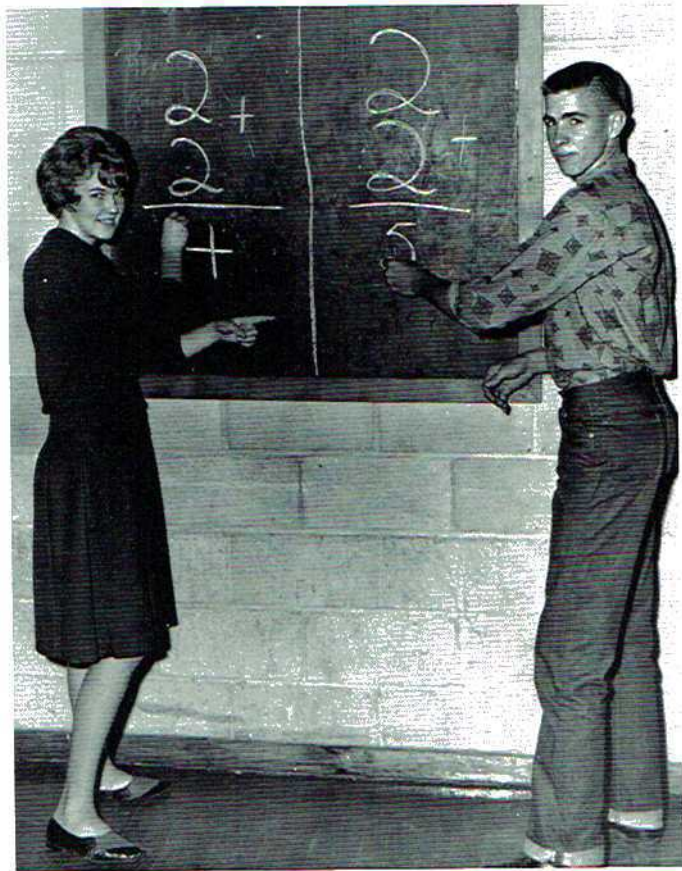 2 +
2
+
2
2 +
5